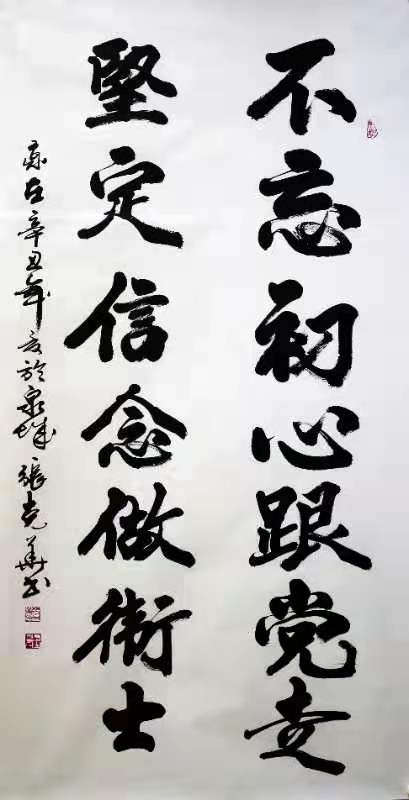 不忘初心跟党走
堅定信念做衛士
辛丑年夏於泉城 張克華书